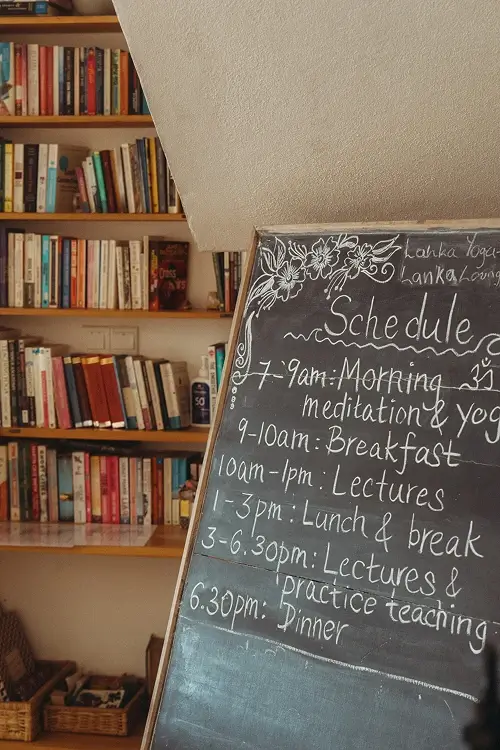 Lanka Yoga
Lanka Living
Schedule
7-9am: Morning ॐ
meditation & yog
9-10am: Breakfast
10am-1pm: Lectures
1-3pm: Lunch & break
3-6.30pm: Lectures &
practice teaching
6.30pm: Dinner
50